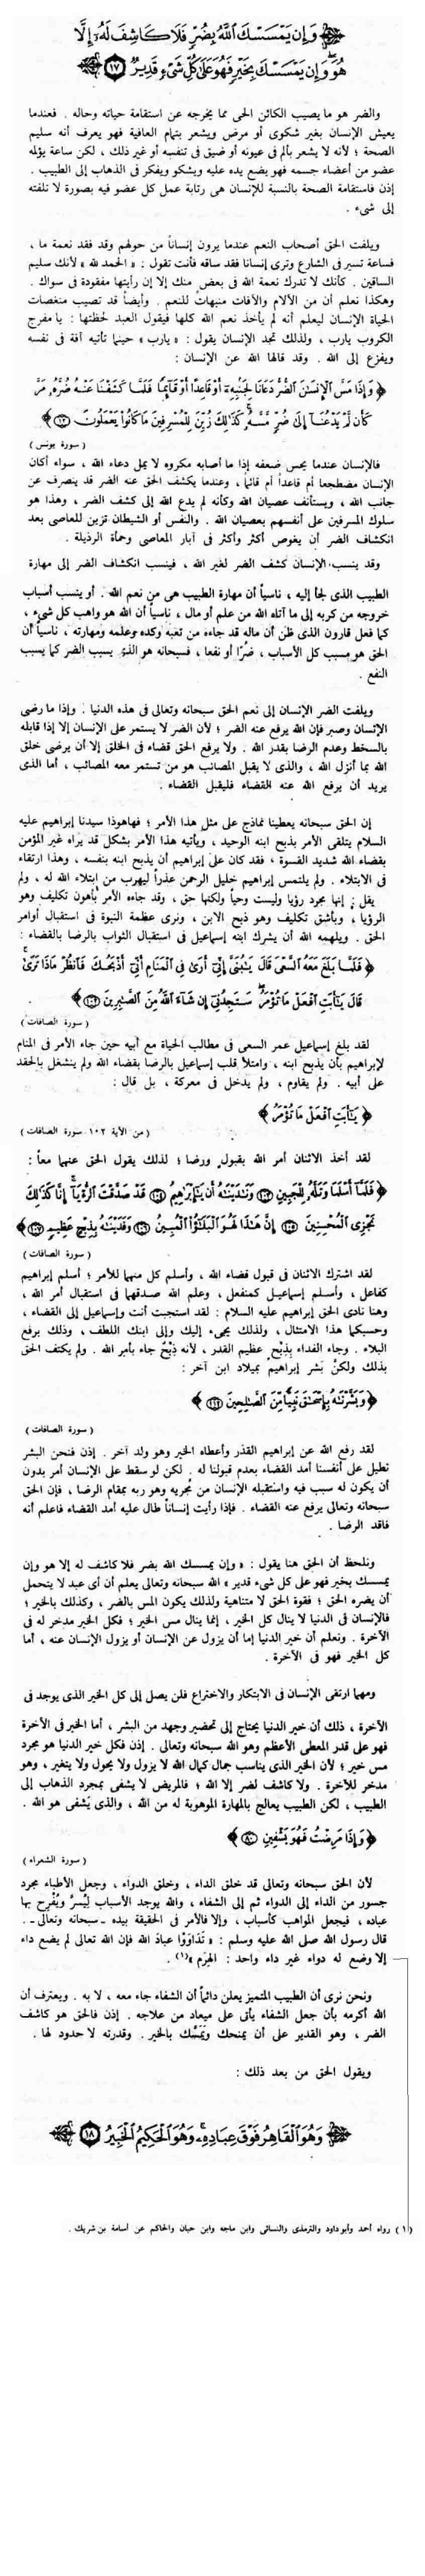 وَإِن يَمْسَسْكَ ٱللَّهُ بِضُرٍّ فَلَا كَاشِفَ لَهُۥٓ إِلَّا
هُوَ وَإِن يَمْسَسْكَ بِخَيْرٍ فَهُوَ عَلَىٰ كُلِّ شَىْءٍ قَدِيرٌ ١٧
والضر هو ما يصيب الكائن الحى مما يخرجه عن استقامة حياته وحاله . فعندما
يعيش الإنسان بغير شكوى أو مرض ويشعر بتمام العافية فهو يعرف أنه سليم
الصحة ؛ لأنه لا يشعر بألم فى عيونه أو ضيق فى تنفسه أو غير ذلك ، لكن ساعة يؤلمه
عضو من أعضاء جسمه فهو يضع يده عليه ويشكو ويفكر فى الذهاب إلى الطبيب .
إذن فاستقامة الصحة بالنسبة للإنسان هى رتابة عمل كل عضو فيه بصورة لا تلفته
إلى شىء .
ويلفت الحق أصحاب النعم عندما يرون إنساناً من حولهم وقد فقد نعمة ما ،
فساعة تسير فى الشارع وترى إنسانا فقد ساقه فأنت تقول : « الحمد لله » لأنك سليم
الساقين . كأنك لا تدرك نعمة الله فى بعض منك إلا إن رأيتها مفقودة فى سواك .
وهكذا نعلم أن من الآلام والآفات منبهات للنعم . وأيضاً قد تصيب منغصات
الحياة الإنسان ليعلم أنه لم يأخذ نعم الله كلها فيقول العبد لحظتها : يا مفرج
الكروب يارب ، ولذلك تجد الإنسان يقول : « يارب » حينما تأتيه آفة فى نفسه
ويفزع إلى الله . وقد قالها الله عن الإنسان :
﴿ وَإِذَا مَسَّ ٱلْإِنسَٰنَ ٱلضُّرُّ دَعَانَا لِجَنۢبِهِۦٓ أَوْ قَاعِدًا أَوْ قَآئِمًا فَلَمَّا كَشَفْنَا عَنْهُ ضُرَّهُۥ مَرَّ
كَأَن لَّمْ يَدْعُنَآ إِلَىٰ ضُرٍّ مَّسَّهُۥ كَذَٰلِكَ زُيِّنَ لِلْمُسْرِفِينَ مَا كَانُوا۟ يَعْمَلُونَ ١٢ ﴾
( سورة يونس )
فالإنسان عندما يحس ضعفه إذا ما أصابه مكروه لا يمل دعاء الله ، سواء أكان
الإنسان مضطجعا أم قاعداً أم قائماً ، وعندما يكشف الحق عنه الضر قد ينصرف عن
جانب الله ، ويستأنف عصيان الله وكأنه لم يدع الله إلى كشف الضر ، وهذا هو
سلوك المسرفين على أنفسهم بعصيان الله . والنفس أو الشيطان تزين للعاصى بعد
انكشاف الضر أن يغوص أكثر وأكثر فى آبار المعاصى وحمأة الرذيلة .
وقد ينسب الإنسان كشف الضر لغير الله ، فينسب انكشاف الضر إلى مهارة
الطبيب الذى لجأ إليه ، ناسياً أن مهارة الطبيب هى من نعم الله . أو ينسب أسباب
خروجه من كربه إلى ما آتاه الله من علم أو مال ، ناسياً أن الله هو واهب كل شىء ،
كما فعل قارون الذى ظن أن ماله قد جاءه من تعبه وكده وعلمه ومهارته ، ناسياً أن
الحق هو مسبب كل الأسباب ، ضُرّا أو نفعا ، فسبحانه هو الذى يسبب الضر كما يسبب
النفع .
ويلفت الضر الإنسان إلى نعم الحق سبحانه وتعالى فى هذه الدنيا . وإذا ما رضى
الإنسان وصبر فإن الله يرفع عنه الضر ؛ لأن الضر لا يستمر على الإنسان إلا إذا قابله
بالسخط وعدم الرضا بقدر الله . ولا يرفع الحق قضاء فى الخلق إلا أن يرضى خلق
الله بما أنزل الله ، والذى لا يقبل المصائب هو من تستمر معه المصائب ، أما الذى
يريد أن يرفع الله عنه القضاء فليقبل القضاء .
إن الحق سبحانه يعطينا نماذج على مثل هذا الأمر ؛ فهاهوذا سيدنا إبراهيم عليه
السلام يتلقى الأمر بذبح ابنه الوحيد ، ويأتيه هذا الأمر بشكل قد يراه غير المؤمن
بقضاء الله شديد القسوة ، فقد كان على إبراهيم أن يذبح ابنه بنفسه ، وهذا ارتقاء
فى الابتلاء . ولم يلتمس إبراهيم خليل الرحمن عذراً ليهرب من ابتلاء الله له ، ولم
يقل : إنها مجرد رؤيا وليست وحياً ولكنها حق ، وقد جاءه الأمر بأهون تكليف وهو
الرؤيا ، وبأشق تكليف وهو ذبح الابن ، ونرى عظمة النبوة فى استقبال أوامر
الحق . ويلهمه الله أن يشرك ابنه إسماعيل فى استقبال الثواب بالرضا بالقضاء :
﴿ فَلَمَّا بَلَغَ مَعَهُ ٱلسَّعْىَ قَالَ يَٰبُنَىَّ إِنِّىٓ أَرَىٰ فِى ٱلْمَنَامِ أَنِّىٓ أَذْبَحُكَ فَٱنظُرْ مَاذَا تَرَىٰ
قَالَ يَٰٓأَبَتِ ٱفْعَلْ مَا تُؤْمَرُ سَتَجِدُنِىٓ إِن شَآءَ ٱللَّهُ مِنَ ٱلصَّٰبِرِينَ ١٠٢ ﴾
( سورة الصافات )
لقد بلغ إسماعيل عمر السعى فى مطالب الحياة مع أبيه حين جاء الأمر فى المنام
لإبراهيم بأن يذبح ابنه ، وامتلأ قلب إسماعيل بالرضا بقضاء الله ولم ينشغل بالحقد
على أبيه . ولم يقاوم ، ولم يدخل فى معركة ، بل قال :
﴿ يَٰٓأَبَتِ ٱفْعَلْ مَا تُؤْمَرُ ﴾
( من الآية ١٠٢ سورة الصافات )
لقد أخذ الاثنان أمر الله بقبول ورضا ؛ لذلك يقول الحق عنهما معاً :
﴿ فَلَمَّآ أَسْلَمَا وَتَلَّهُۥ لِلْجَبِينِ ١٠٣ وَنَٰدَيْنَٰهُ أَن يَٰٓإِبْرَٰهِيمُ ١٠٤ قَدْ صَدَّقْتَ ٱلرُّءْيَآ إِنَّا كَذَٰلِكَ
نَجْزِى ٱلْمُحْسِنِينَ ١٠٥ إِنَّ هَٰذَا لَهُوَ ٱلْبَلَٰٓؤُا۟ ٱلْمُبِينُ ١٠٦ وَفَدَيْنَٰهُ بِذِبْحٍ عَظِيمٍ ١٠٧ ﴾
( سورة الصافات )
لقد اشترك الاثنان فى قبول قضاء الله ، وأسلم كل منهما للأمر ؛ أسلم إبراهيم
كفاعل ، وأسلم إسماعيل كمنفعل ، وعلم الله صدقهما فى استقبال أمر الله ،
وهنا نادى الحق إبراهيم عليه السلام : لقد استجبت أنت وإسماعيل إلى القضاء ،
وحسبكما هذا الامتثال ، ولذلك يجىء إليك وإلى ابنك اللطف ، وذلك برفع
البلاء . وجاء الفداء بذِبْح عظيم القدر ، لأنه ذِبْحٌ جاء بأمر الله . ولم يكتف الحق
بذلك ولكنْ بَشَر إبراهيم بميلاد ابن آخر :
﴿ وَبَشَّرْنَٰهُ بِإِسْحَٰقَ نَبِيًّا مِّنَ ٱلصَّٰلِحِينَ ١١٢ ﴾
( سورة الصافات )
لقد رفع الله عن إبراهيم القدر وأعطاه الخير وهو ولد آخر . إذن فنحن البشر
نطيل على أنفسنا أمد القضاء بعدم قبولنا له . لكن لو سقط على الإنسان أمر بدون
أن يكون له سبب فيه واستقبله الإنسان من مُجريه وهو ربه بمقام الرضا ، فإن الحق
سبحانه وتعالى يرفع عنه القضاء . فإذا رأيت إنساناً طال عليه أمد القضاء فاعلم أنه
فاقد الرضا .
ونلحظ أن الحق هنا يقول : « وإن يمسسك الله بضر فلا كاشف له إلا هو وإن
يمسسك بخير فهو على كل شىء قدير » الله سبحانه وتعالى يعلم أن أى عبد لا يتحمل
أن يضره الحق ؛ فقوة الحق لا متناهية ولذلك يكون المس بالضر ، وكذلك بالخير ؛
فالإنسان فى الدنيا لا ينال كل الخير ، إنما ينال مس الخير ؛ فكل الخير مدخر له فى
الآخرة . ونعلم أن خير الدنيا إما أن يزول عن الإنسان أو يزول الإنسان عنه ، أما
كل الخير فهو فى الآخرة .
ومهما ارتقى الإنسان فى الابتكار والاختراع فلن يصل إلى كل الخير الذى يوجد فى
الآخرة ، ذلك أن خير الدنيا يحتاج إلى تحضير وجهد من البشر ، أما الخير فى الآخرة
فهو على قدر المعطى الأعظم وهو الله سبحانه وتعالى . إذن فكل خير الدنيا هو مجرد
مس خير ؛ لأن الخير الذى يناسب جمال كمال الله لا يزول ولا يحول ولا يتغير ، وهو
مدخر للآخرة . ولا كاشف لضر إلا الله ؛ فالمريض لا يشفى بمجرد الذهاب إلى
الطبيب ، لكن الطبيب يعالج بالمهارة الموهوبة له من الله ، والذى يَشفى هو الله .
﴿ وَإِذَا مَرِضْتُ فَهُوَ يَشْفِينِ ٨٠ ﴾
( سورة الشعراء )
لأن الحق سبحانه وتعالى قد خلق الداء ، وخلق الدواء ، وجعل الأطباء مجرد
جسور من الداء إلى الدواء ثم إلى الشفاء ، والله يوجد الأسباب لِيُسرَّ ويُفْرِح بها
عباده ، فيجعل المواهب كأسباب ، وإلا فالأمر فى الحقيقة بيده - سبحانه وتعالى - .
قال رسول الله صلى الله عليه وسلم : « تَدَاوَوْا عبادَ الله فإن الله تعالى لم يضع داء
إلا وضع له دواء غير داء واحد : الهَرَم »(١) .
ونحن نرى أن الطبيب المتميز يعلن دائماً أن الشفاء جاء معه ، لا به . ويعترف أن
الله أكرمه بأن جعل الشفاء يأتى على ميعاد من علاجه . إذن فالحق هو كاشف
الضر ، وهو القدير على أن يمنحك ويَمَسَّك بالخير . وقدرته لا حدود لها .
ويقول الحق من بعد ذلك :
وَهُوَ ٱلْقَاهِرُ فَوْقَ عِبَادِهِۦ وَهُوَ ٱلْحَكِيمُ ٱلْخَبِيرُ ١٨
( ١ ) رواه أحمد وأبو داود والترمذى والنسائى وابن ماجه وابن حبان والحاكم عن أسامة بن شريك .